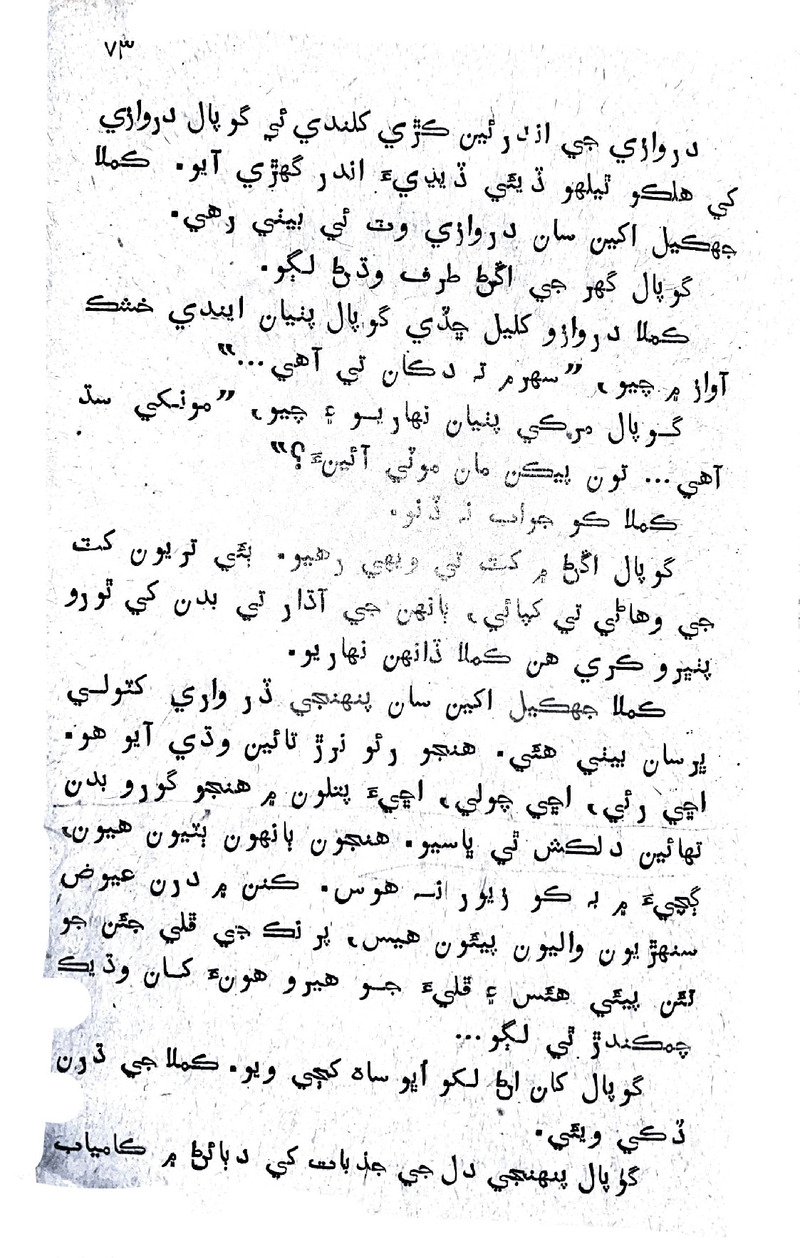 ٧٣
دروازي جي اندرئين ڪڙي کلندي ئي گوپال دروازي
کي هلڪو ٿيلهو ڏيئي ڏيڍيءَ اندر گهڙي آيو. ڪملا
جهڪيل اکين سان دروازي وٽ ئي بيٺي رهي.
گوپال گهر جي اڱڻ طرف وڌڻ لڳو.
ڪملا دروازو کليل ڇڏي گوپال پٺيان ايندي خشڪ
آواز ۾ چيو، ”سهرم تہ دڪان تي آهي...“
گوپال مرڪي پٺيان نهاريو ۽ چيو، ”مونکي سڌ
آهي... تون پيڪن مان موٽي آئينءَ؟“
ڪملا ڪو جواب نہ ڏنو.
گوپال اڱڻ ۾ کٽ تي ويهي رهيو. ٻئي ٺريون کٽ
جي وهاڻي تي کپائي، ٻانهن جي آڌار تي بدن کي ٿورو
پٺيرو ڪري هن ڪملا ڏانهن نهاريو.
ڪملا جهڪيل اکين سان پنهنجي ڏر واري کٽولي
ڀرسان بيٺي هئي. هنجو رئو نرڙ تائين وڌي آيو هو.
اڇي رئي، اڇي چولي، اڇيءَ پتلون ۾ هنجو گورو بدن
تهائين دلڪش ٿي ڀاسيو. هنجون ٻانهون ٻٽيون هيون،
ڳچيءَ ۾ بہ ڪو زيور نہ هوس. ڪنن ۾ درن عيوض
سنهڙيون واليون پيئون هيس، پر نڪ جي ڦلي جئن جو
تئن پيئي هئس ۽ ڦليءَ جو هيرو هونءَ کان وڌيڪ
چمڪندڙ ٿي لڳو...
گوپال کان اڻ لکو اُڀو ساه کڄي ويو. ڪملا جي ڌرن
ڏڪي ويئي.
گوپال پنهنجي دل جي جذبات کي دٻائڻ ۾ ڪامياب